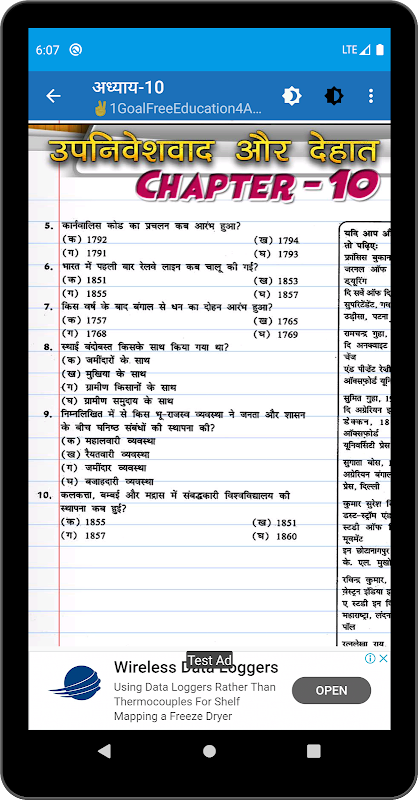 6:07
LTE
अध्याय-10
✌1GoalFreeEducation4A...
उपनिवेशवाद और देहात
CHAPTER - 10
5. कार्नवालिस कोड का प्रचलन कब आरंभ हुआ?
(क) 1792 (ख) 1794
(ग) 1791 (घ) 1793
6. भारत में पहली बार रेलवे लाइन कब चालू की गई?
(क) 1851 (ख) 1853
(ग) 1855 (घ) 1857
7. किस वर्ष के बाद बंगाल से धन का दोहन आरंभ हुआ?
(क) 1757 (ख) 1765
(ग) 1768 (घ) 1769
8. स्थाई बंदोबस्त किसके साथ किया गया था?
(क) जमींदारों के साथ
(ख) मुखिया के साथ
(ग) ग्रामीण किसानों के साथ
(घ) ग्रामीण समुदाय के साथ
9. निम्नलिखित में से किस भू-राजस्व व्यवस्था ने जनता और शासन
के बीच घनिष्ठ संबंधों की स्थापना की?
(क) महालवारी व्यवस्था
(ख) रैयतवारी व्यवस्था
(ग) जमींदार व्यवस्था
(घ) बजाहदारी व्यवस्था
10. कलकत्ता, बम्बई और मद्रास में संबद्धकारी विश्वविद्यालय की
स्थापना कब हुई?
(क) 1855 (ख) 1851
(ग) 1857 (घ) 1860
यदि आप औ
तो पढ़िए:
फ्रांसिस बुकान
जरनल ऑफ
ड्यूरिंग
दि सर्वे ऑफ दि
सुपरिटेंडेंट, गव
उड़ीसा, पटना
रामचन्द्र गुहा,
दि अनक्वाइट
चेंज
एंड पीजेंट रेजी
ऑक्सफोर्ड यूनि
सुमित गुहा, 19
दि अग्रेरियन इ
डेक्कन, 18
ऑक्सफोर्ड
यूनिवर्सिटी प्रेस
सुगाता बोस,
अग्रेरियन बंगाल
प्रेस, दिल्ली
कुमार सुरेश सि
डस्ट-स्ट्रॉम एंड
स्टडी ऑफ
मूवमेंट
इन छोटानागपुर
के. एल. मुखो
रविन्द्र कुमार,
वेस्ट्रन इंडिया इ
ए स्टडी इन दि
महाराष्ट्रा, लंदन
पॉल
रत्नलेखा राय
Test Ad
Wireless Data Loggers
Using Data Loggers Rather Than
Thermocouples For Shelf
Mapping a Freeze Dryer
OPEN